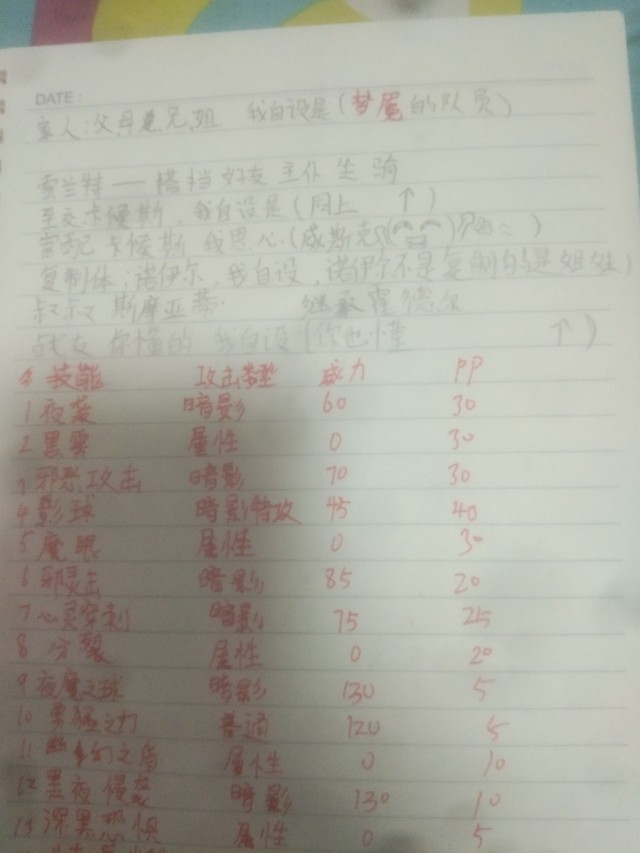 DATE:
主人:父母兄,姐 我自设是(梦魇的队员)
索兰特——搭挡 好友 主仆 坐骑
至交 卡修斯,我自设是(同上 ↑)
官配 卡修斯 我恶心:(威斯克
复制体:诺伊尔,我自设,诺伊尔不是复制的是姐姓)
叔叔 斯摩亚蒂· 继承 霍德尔
战友 你懂的 我自设(你也懂 ↑)
技能 攻击类型 威力 PP
1 夜袭 暗影 60 30
2 黑雾 属性 0 30
3 邪恶攻击 暗影 70 30
4 影球 暗影特攻 45 40
5 魔眼 属性 0 30
6 邪灵击 暗影 85 20
7 心灵穿刺 暗影 75 25
8 分裂 属性 0 20
9 夜魔之球 暗影 130 5
10 勇猛之力 普通 120 5
11 之盾 属性 0 10
12 黑夜侵袭 暗影 130 10
13 深黑恐惧 属性 0 5